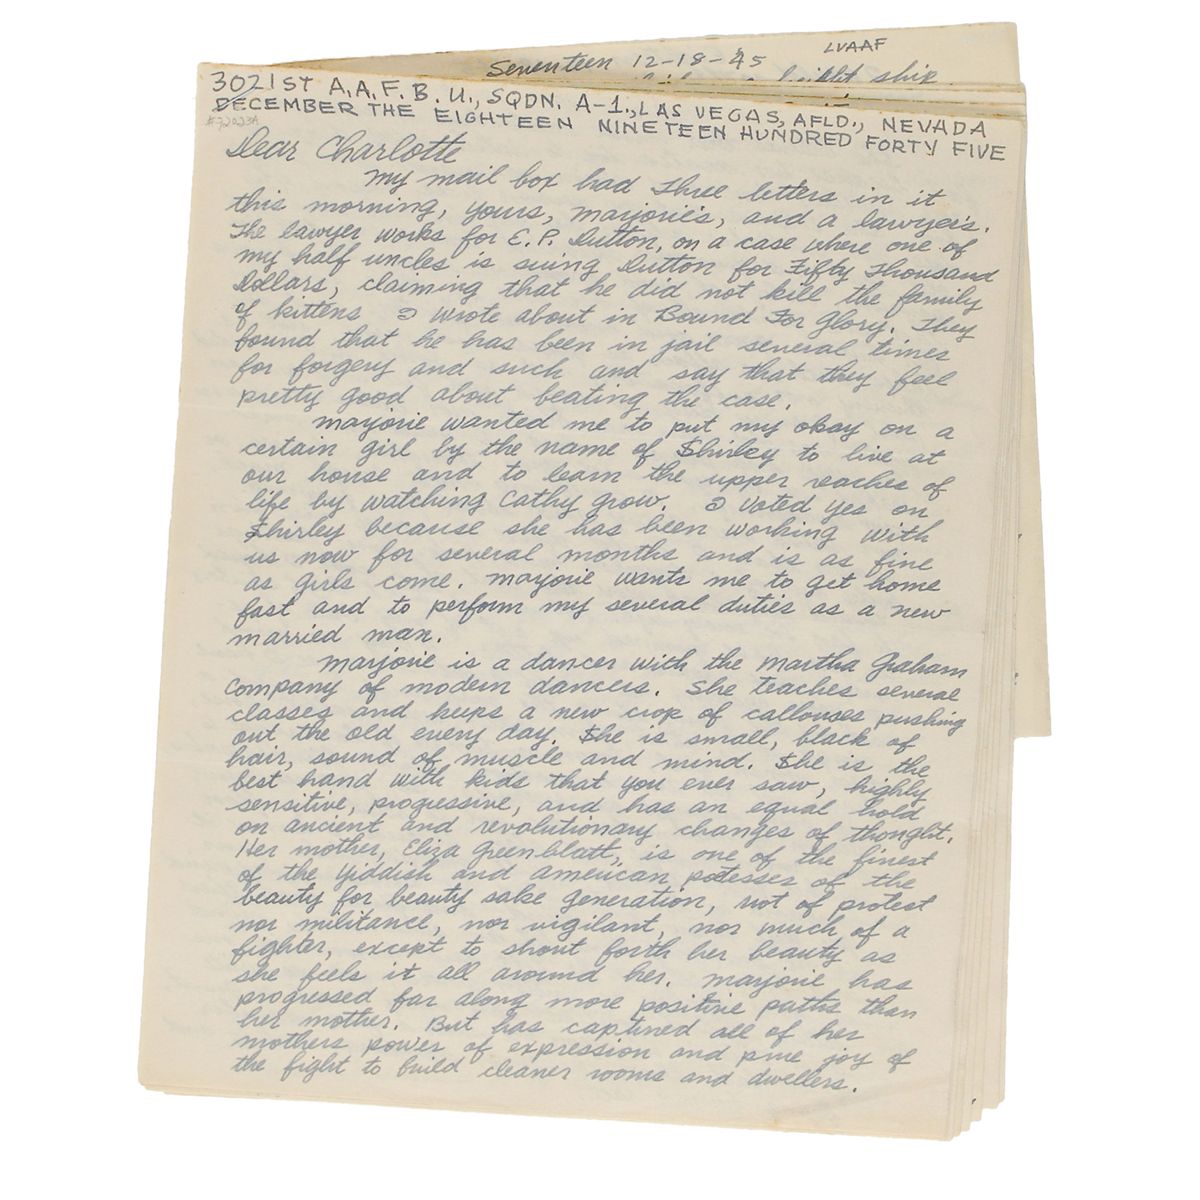 Seventeen 12-18-45 LVAAF
ship
3021ST A.A.F.B.U., SQDN. A-1., LAS VEGAS, AFLD., NEVADA
DECEMBER THE EIGHTEEN NINETEEN HUNDRED FORTY FIVE
#72023A
Dear Charlotte
My mail box had three letters in it
this morning, yours, Marjorie's, and a lawyer's.
The lawyer works for E.P. Dutton, on a case where one of
my half uncles is suing Dutton for Fifty Thousand
Dollars, claiming that he did not kill the family
of kittens I wrote about in Bound For Glory. They
found that he has been in jail several times
for forgery and such and say that they feel
pretty good about beating the case.
Marjorie wanted me to put my okay on a
certain girl by the name of Shirley to live at
our house and to learn the upper reaches of
life by watching Cathy grow. I voted yes on
Shirley because she has been working with
us now for several months and is as fine
as girls come. Marjorie wants me to get home
fast and to perform my several duties as a new
married man.
Marjorie is a dancer with the Martha Graham
Company of modern dancers. She teaches several
classes and keeps a new crop of callouses pushing
out the old every day. She is small, black of
hair, sound of muscle and mind. She is the
best hand with kids that you ever saw, highly
sensitive, progressive, and has an equal hold
on ancient and revolutionary changes of thought.
Her mother, Eliza Greenblatt, is one of the finest
of the Yiddish and American poetesses of the
beauty for beauty sake generation, not of protest
nor militance, nor vigilant, nor much of a
fighter, except to shout forth her beauty as
she feels it all around her. Marjorie has
progressed far along more positive paths than
her mother. But has captured all of her
mothers power of expression and pure joy of
the fight to build cleaner rooms and dwellers.